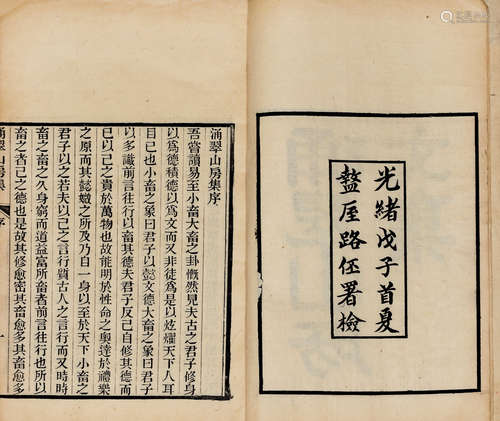 光緒戊子首夏
盩厔路伾署檢
涌翠山房集序
吾嘗讀易至小畜大畜之卦慨然見夫古之君子修身
以為德積德以為文而又非徒為是以炫耀天下人耳
目已也小畜之象曰君子以懿文德大畜之象曰君子
以多識前言往行以畜其德夫君子反己自修其德而
已以己之貴於萬物也故能明於性命之奧達於禮樂
之原而其懿媺之所及乃自一身以至於天下小畜之
君子以之若夫以己之言行質古人之言行而又時時
畜之畜之久身窮而道益富所畜者前言往行也所以
畜之者己之德也是故其修愈密其畜愈多其畜愈多
涌翠山房集
序
一